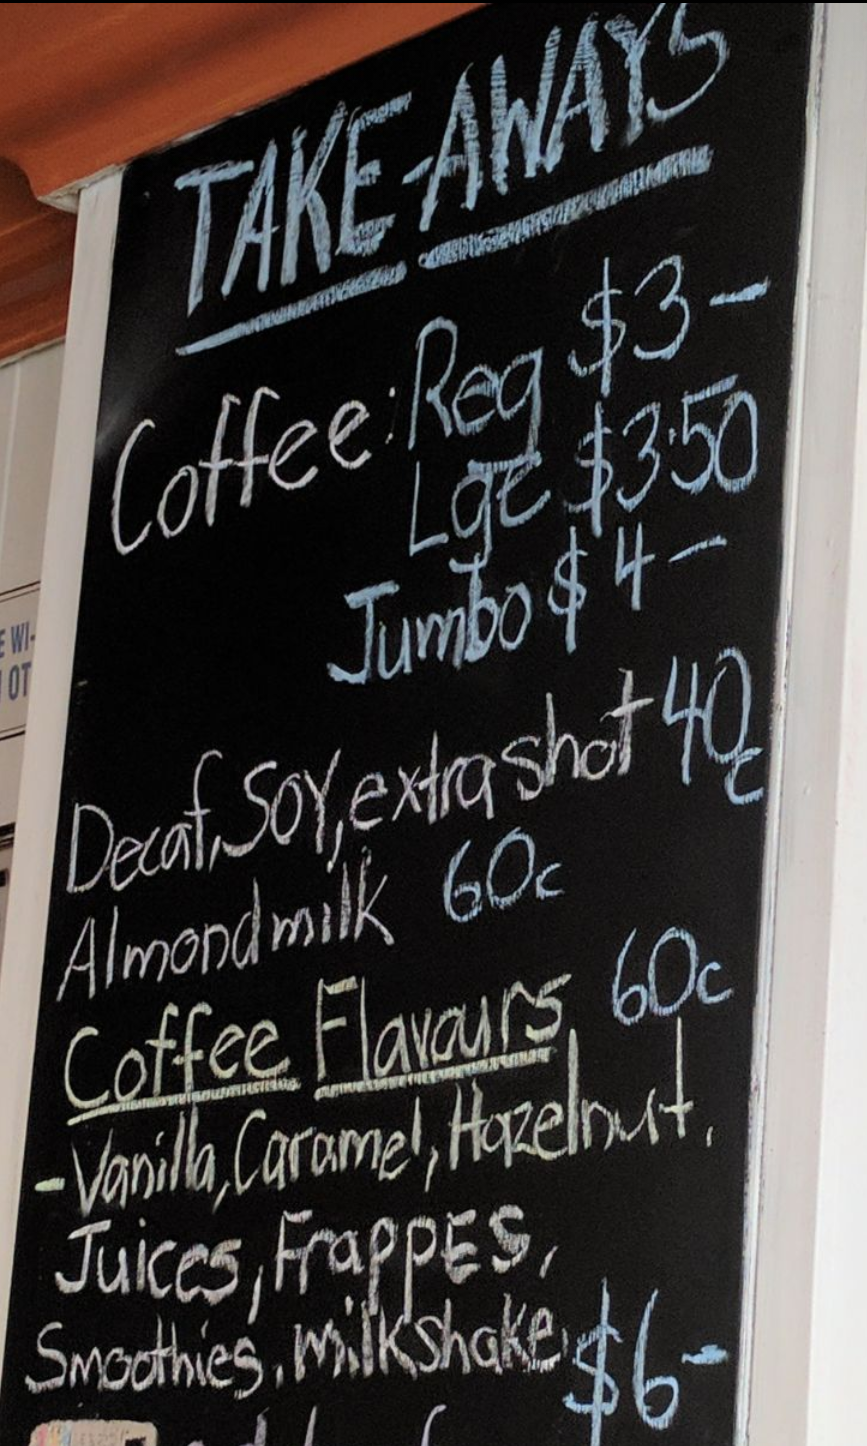 TAKE-AWAYS
Coffee: Reg $3-
Lge $3.50
Jumbo $4-
Decaf, SOY, extra shot 40c
Almond milk 60c
Coffee Flavours 60c
-Vanilla, Caramel, Hazelnut.
Juices, FrappES,
Smoothies, milkshake $6-
E WI-
OT